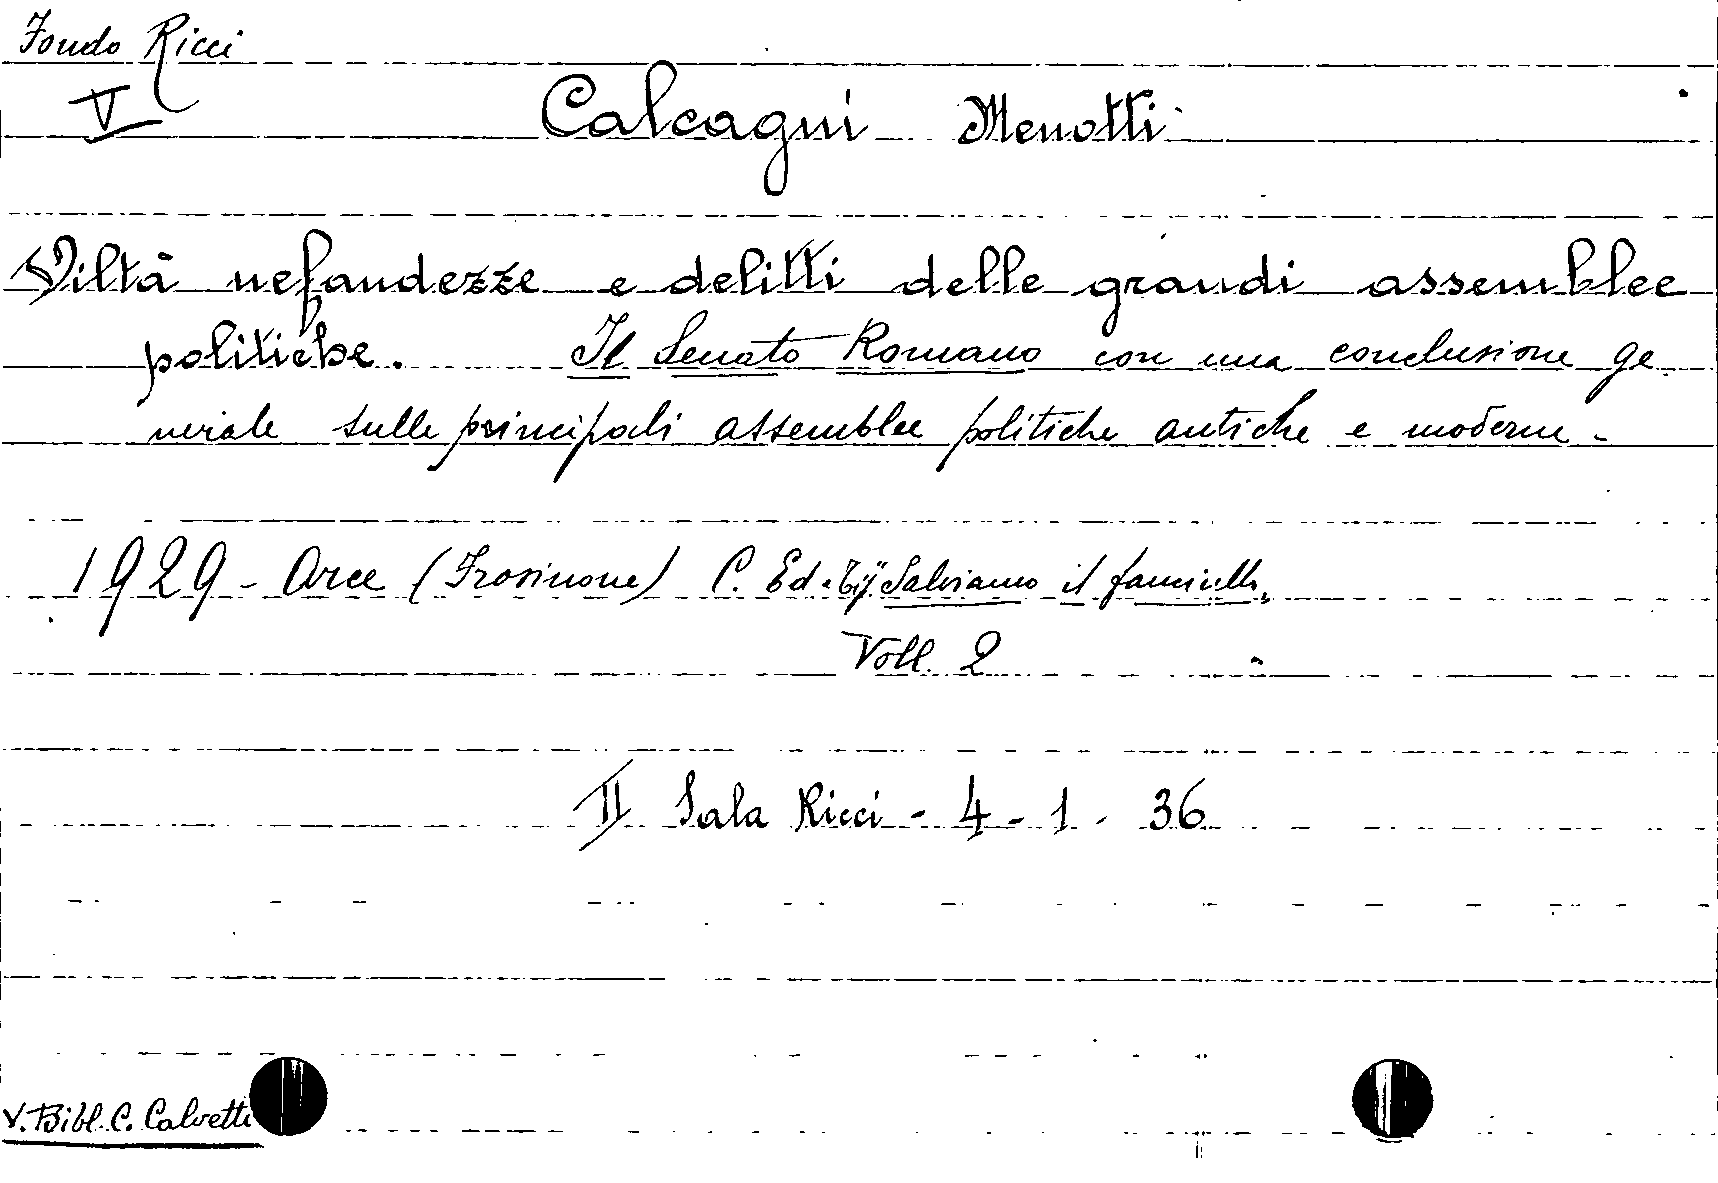 Fondo Ricci
V
Calcagni Menotti
Viltà nefandezze e delitti delle grandi assemblee
politiche. Il Senato Romano con una conclusione ge
nerale sulle principali assemblee politiche antiche e moderne.
1929 - Arce (Frosinone) C. Ed. Tip. "Salviamo il fanciullo"
Voll. 2
II Sala Ricci - 4 - 1 - 36
V. Bibl. C. Calvetti